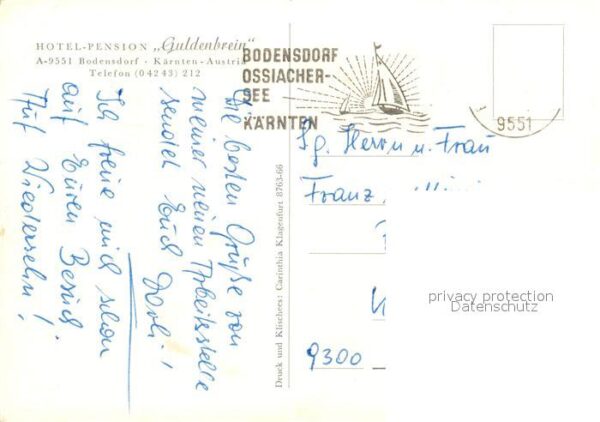 HOTEL-PENSION „Guldenbrein"
A-9551 Bodensdorf · Kärnten-Austria
Telefon (0 42 43) 212
BODENSDORF
OSSIACHER-
SEE
KÄRNTEN
9551
Die besten Grüße von
meiner neuen Arbeitsstelle
sendet Euch
Ich freue mich schon
auf Euren Besuch
Auf Wiedersehn!
Druck und Klischees: Carinthia Klagenfurt 8763-66
Sg. Herrn u. Frau
Franz
9300
privacy protection
Datenschutz